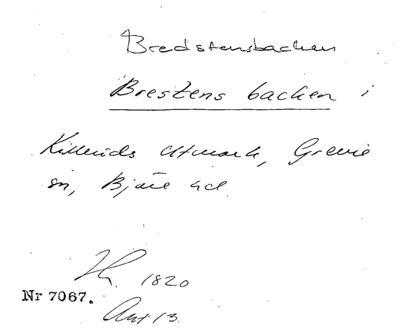 Bredstensbacken
Brestens backen i
Killeröds Utmark, Grevie
sn, Bjäre hd
1820
Nr 7067.
Akt 13.